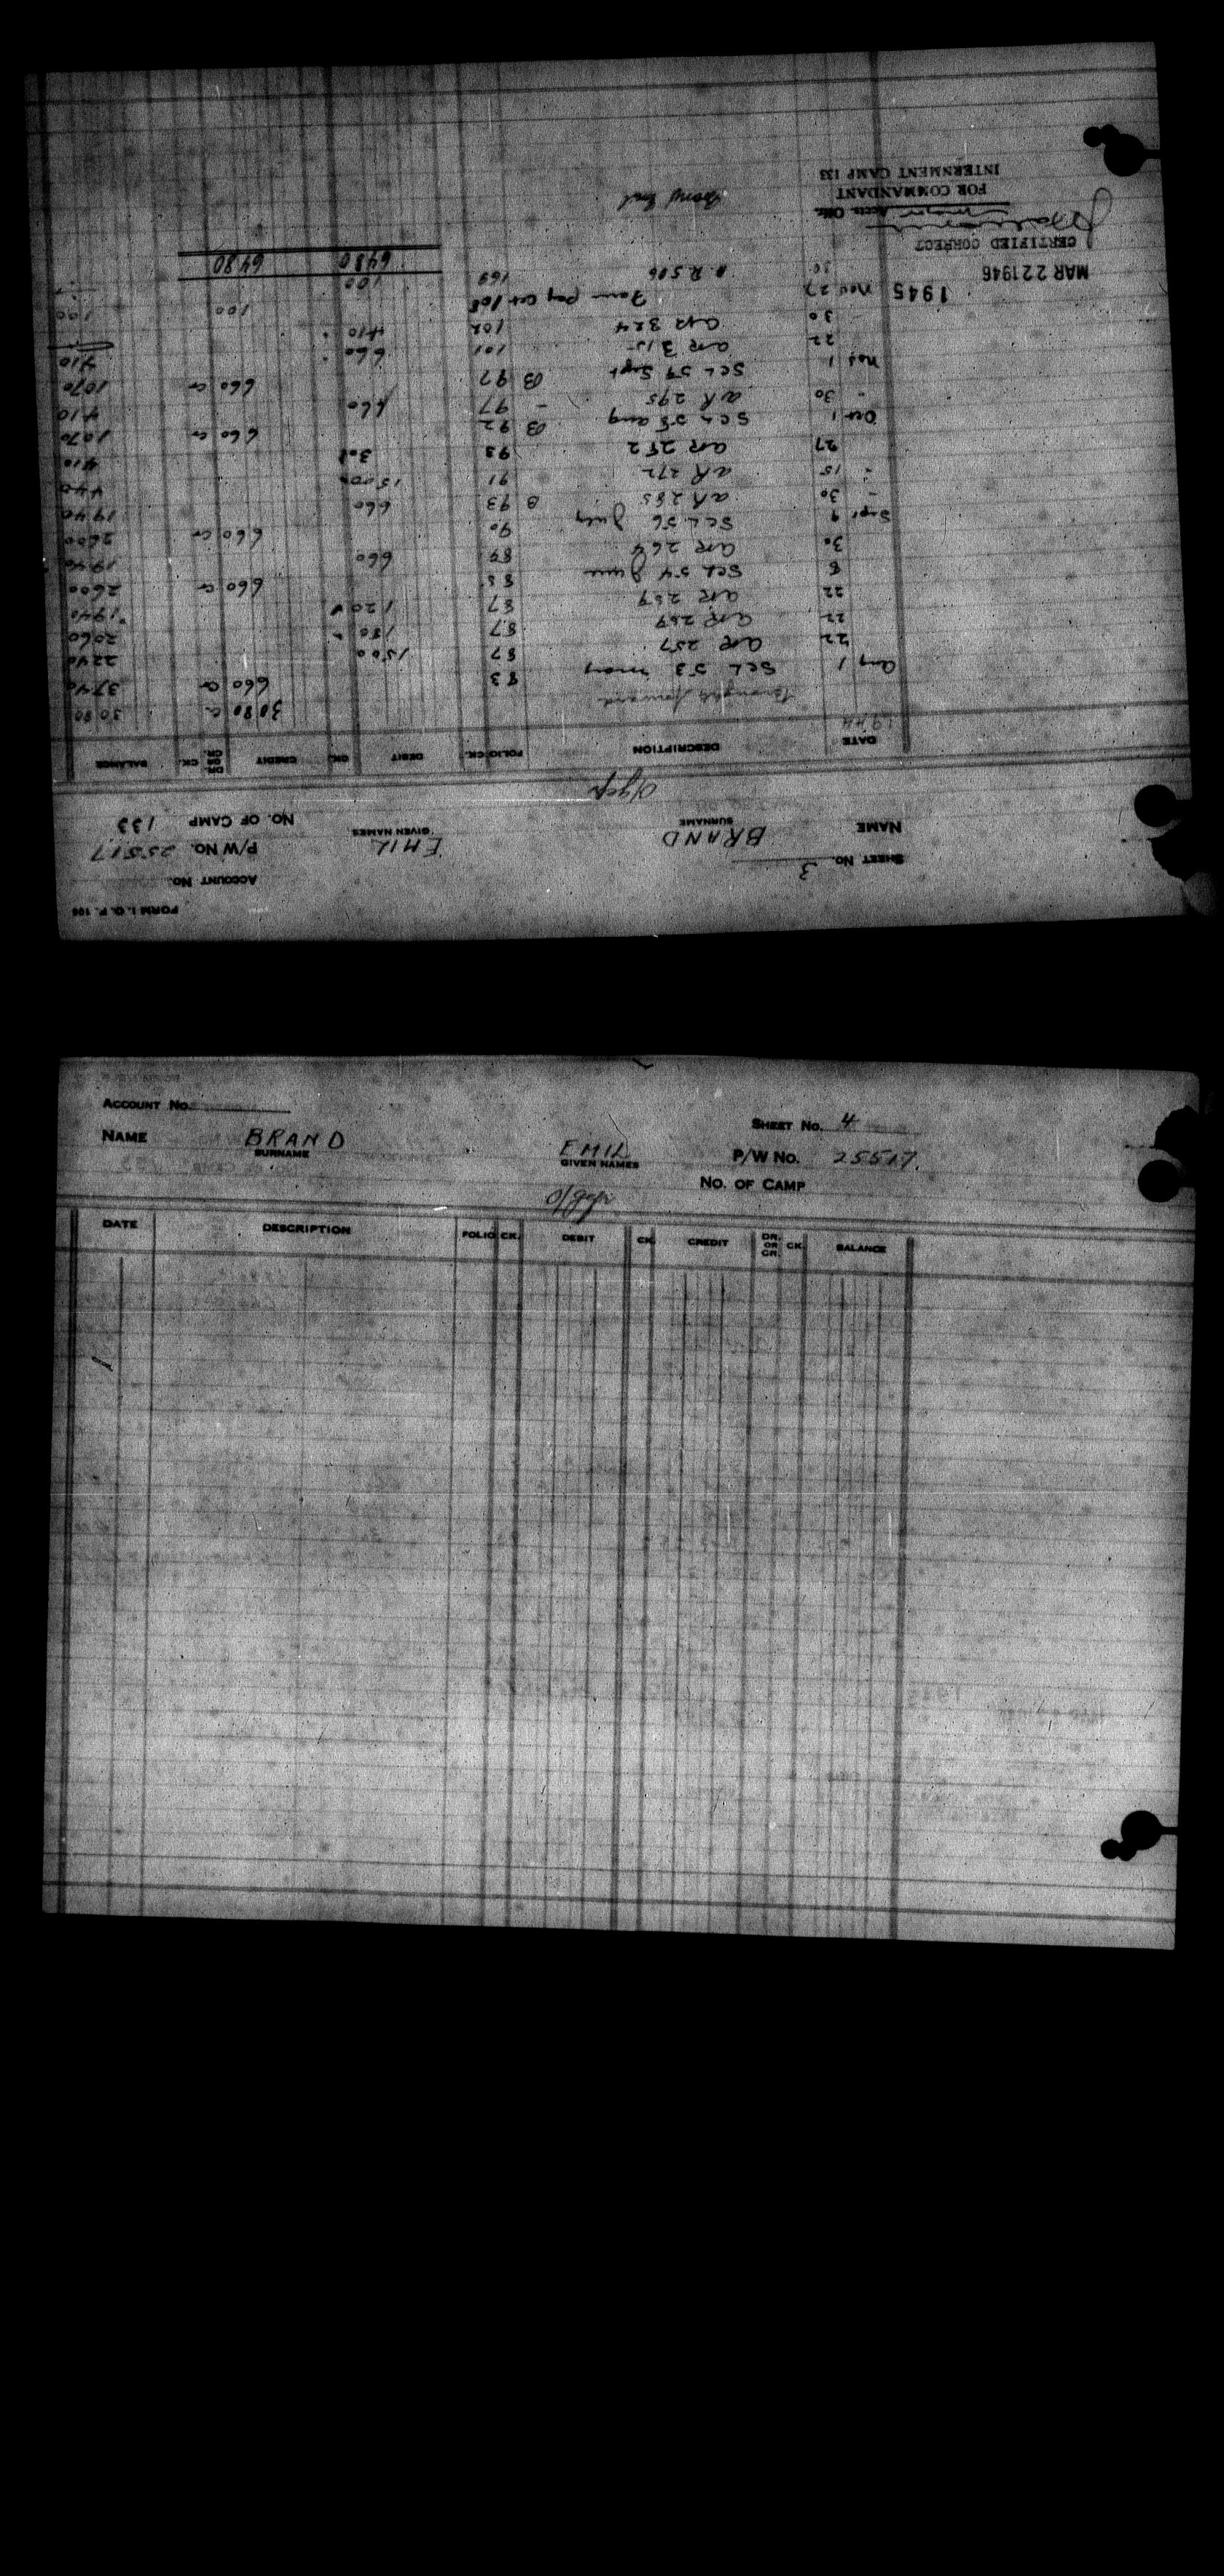 FORM I. O. P. 106
ACCOUNT No.
SHEET No. 3 P/W No. 25517
NAME BRAND EMIL NO. OF CAMP 133
SURNAME GIVEN NAMES
O/gefr
DATE DESCRIPTION FOLIO CK. DEBIT CK. CREDIT DR. OR CR. CK. BALANCE
1944 Brought forward 3080 Cr 3080
Aug 1 SCL 53 may 83 660 Cr 3740
22 AR 257 87 1500 2240
22 AR 259 87 180 2060
22 AR 259 87 120 1940
8 SCL 54 June 88 660 Cr 2600
30 AR 264 89 660 1940
Sept 9 SCL 56 July 90 660 Cr 2600
- 30 AR 285 B 93 660 1940
- 15 AR 272 91 1500 440
27 AR 282 93 30 410
Oct 1 SCL 58 aug B 92 660 Cr 1070
- 30 AR 295 97 660 410
Nov 1 SCL 59 Sept B 97 660 Cr 1070
22 AR 315 101 660 410
30 AR 324 102 410
1945 Nov 27 Pay 108 100 100
30 A.R 506 169 100
6480 6480
MAR 22 1946
CERTIFIED CORRECT
Major Accts. Offr.
FOR COMMANDANT
INTERNMENT CAMP 133
ACCOUNT No. SHEET No. 4
NAME BRAND EMIL P/W No. 25517.
SURNAME GIVEN NAMES
NO. OF CAMP
O/gefr
DATE DESCRIPTION FOLIO CK. DEBIT CK. CREDIT DR. OR CR. CK. BALANCE